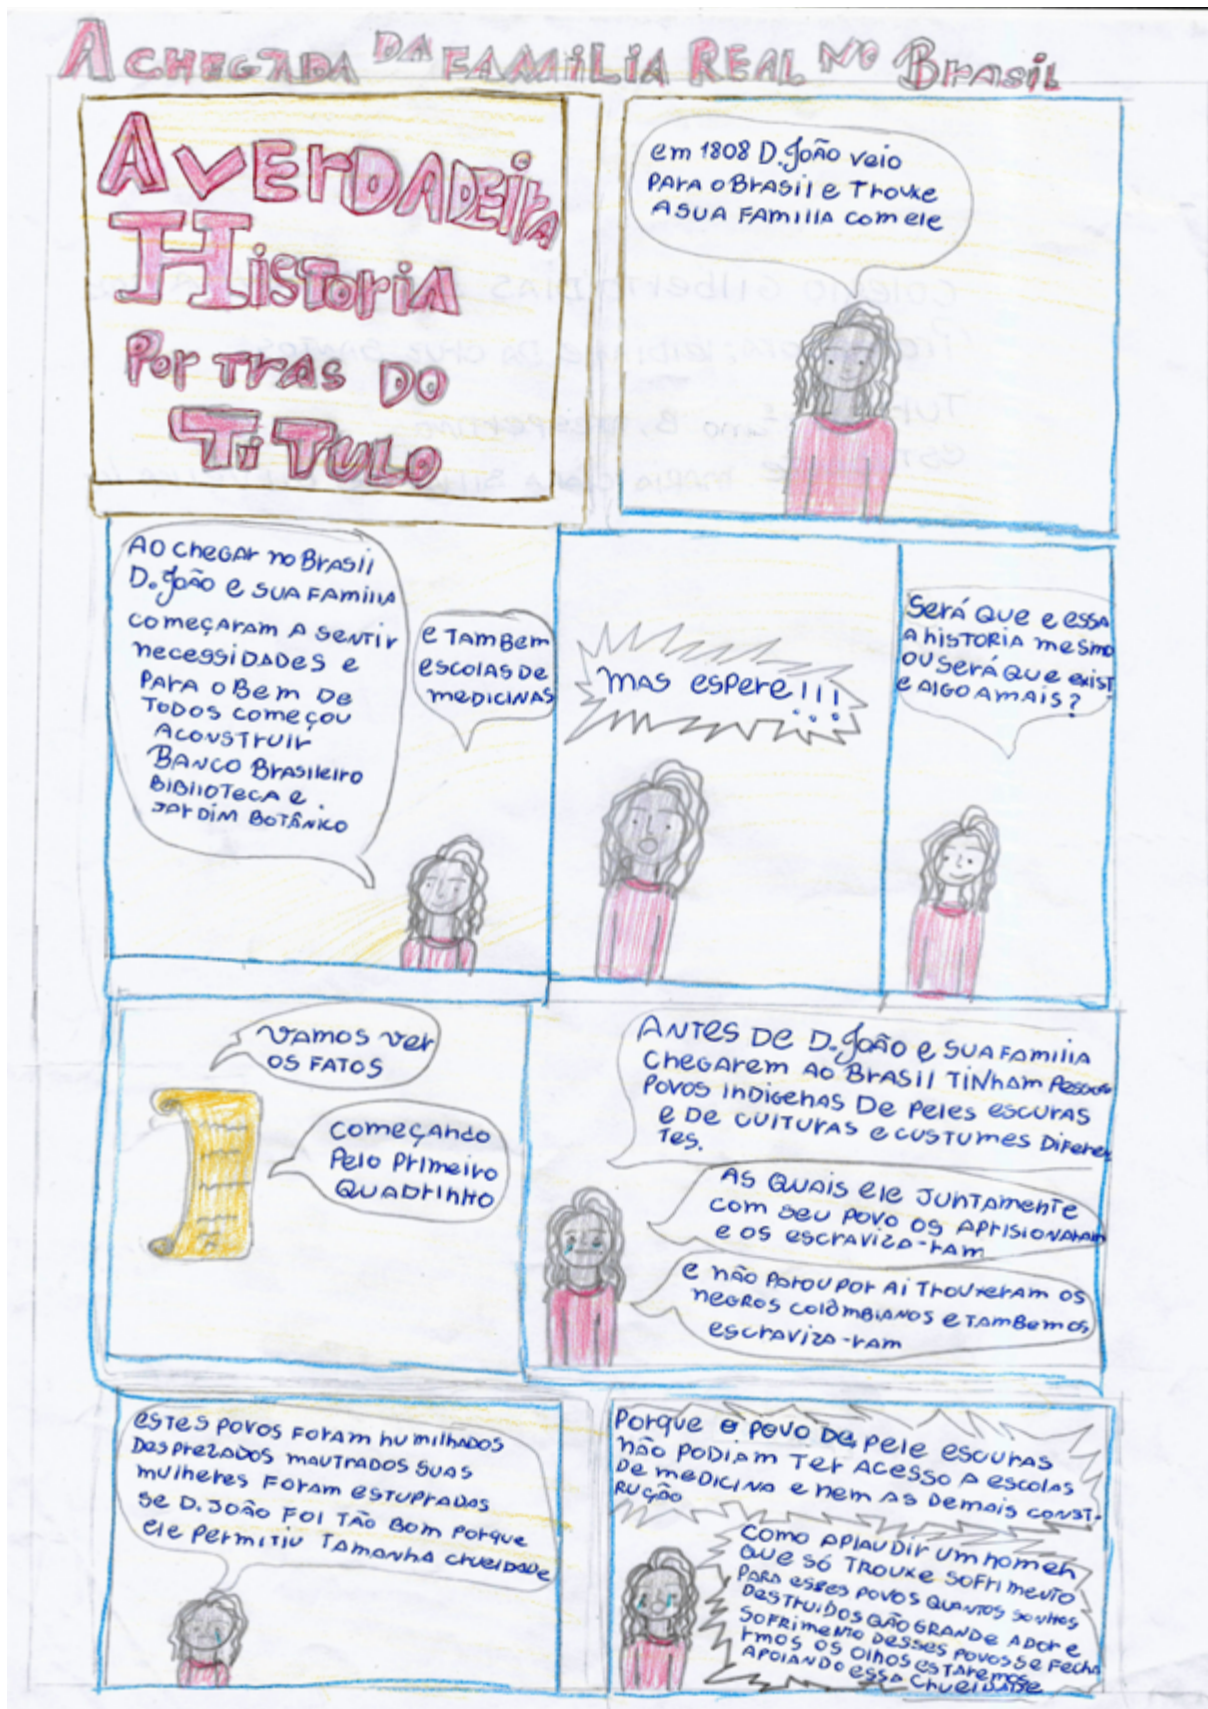 A CHEGADA DA FAMILIA REAL NO BrasiL
A VErDADEirA
HisToriA
Por TrAs DO
TiTULO
em 1808 D. João veio
PARA o BrAsil e Trouxe
A SUA FAMILIA com ele
AO CHEGAR no BrAsil
D. João e SUA FAMILIA
começaram A sentir
necessidades e
PARA o Bem De
Todos começou
A construir
BANCO BrAsileiro
BiBlioTecA e
JArDIM BOTÂNICO
e TAMBem
escolas De
meDicinas
mAs espere!!!
Será Que e essA
A hisToriA mesmo
OU Será Que exist
e Algo A mais?
VAMOS Ver
OS FATOS
começando
Pelo Primeiro
QUADrinHO
ANTES DE D. João e SUA FAMILIA
CHEGArem AO BrAsil TINHAM Pessoas
Povos inDiGenas De Peles escuras
e De culTurAs e cusTumes Diferen
Tes.
AS Quais ele JunTAmenTe
com seu Povo os AprisionarAm
e os escraviza-ram
e não Parou Por Ai Trouxeram os
neGros colômBiAnos e TAmBem os
escraviza-ram
esTes Povos Foram humilhados
DesPrezados mauTrados suas
mulheres Foram esTupradas
se D. João Foi Tão Bom Porque
ele PermiTiu TAmAnha crueldade
Porque o Povo De Pele escuras
não PoDiam Ter Acesso A escolas
De meDicina e nem As Demais const-
rução
como Aplaudir um homem
Que só Trouxe sofrimento
PArA esses Povos QuanTos sonhos
DesTruiDos Qão Grande A Dor e
Sofrimento Desses Povos se Fecha
rmos os olhos esTaremos
ApoiAnDo essA CrueldADe